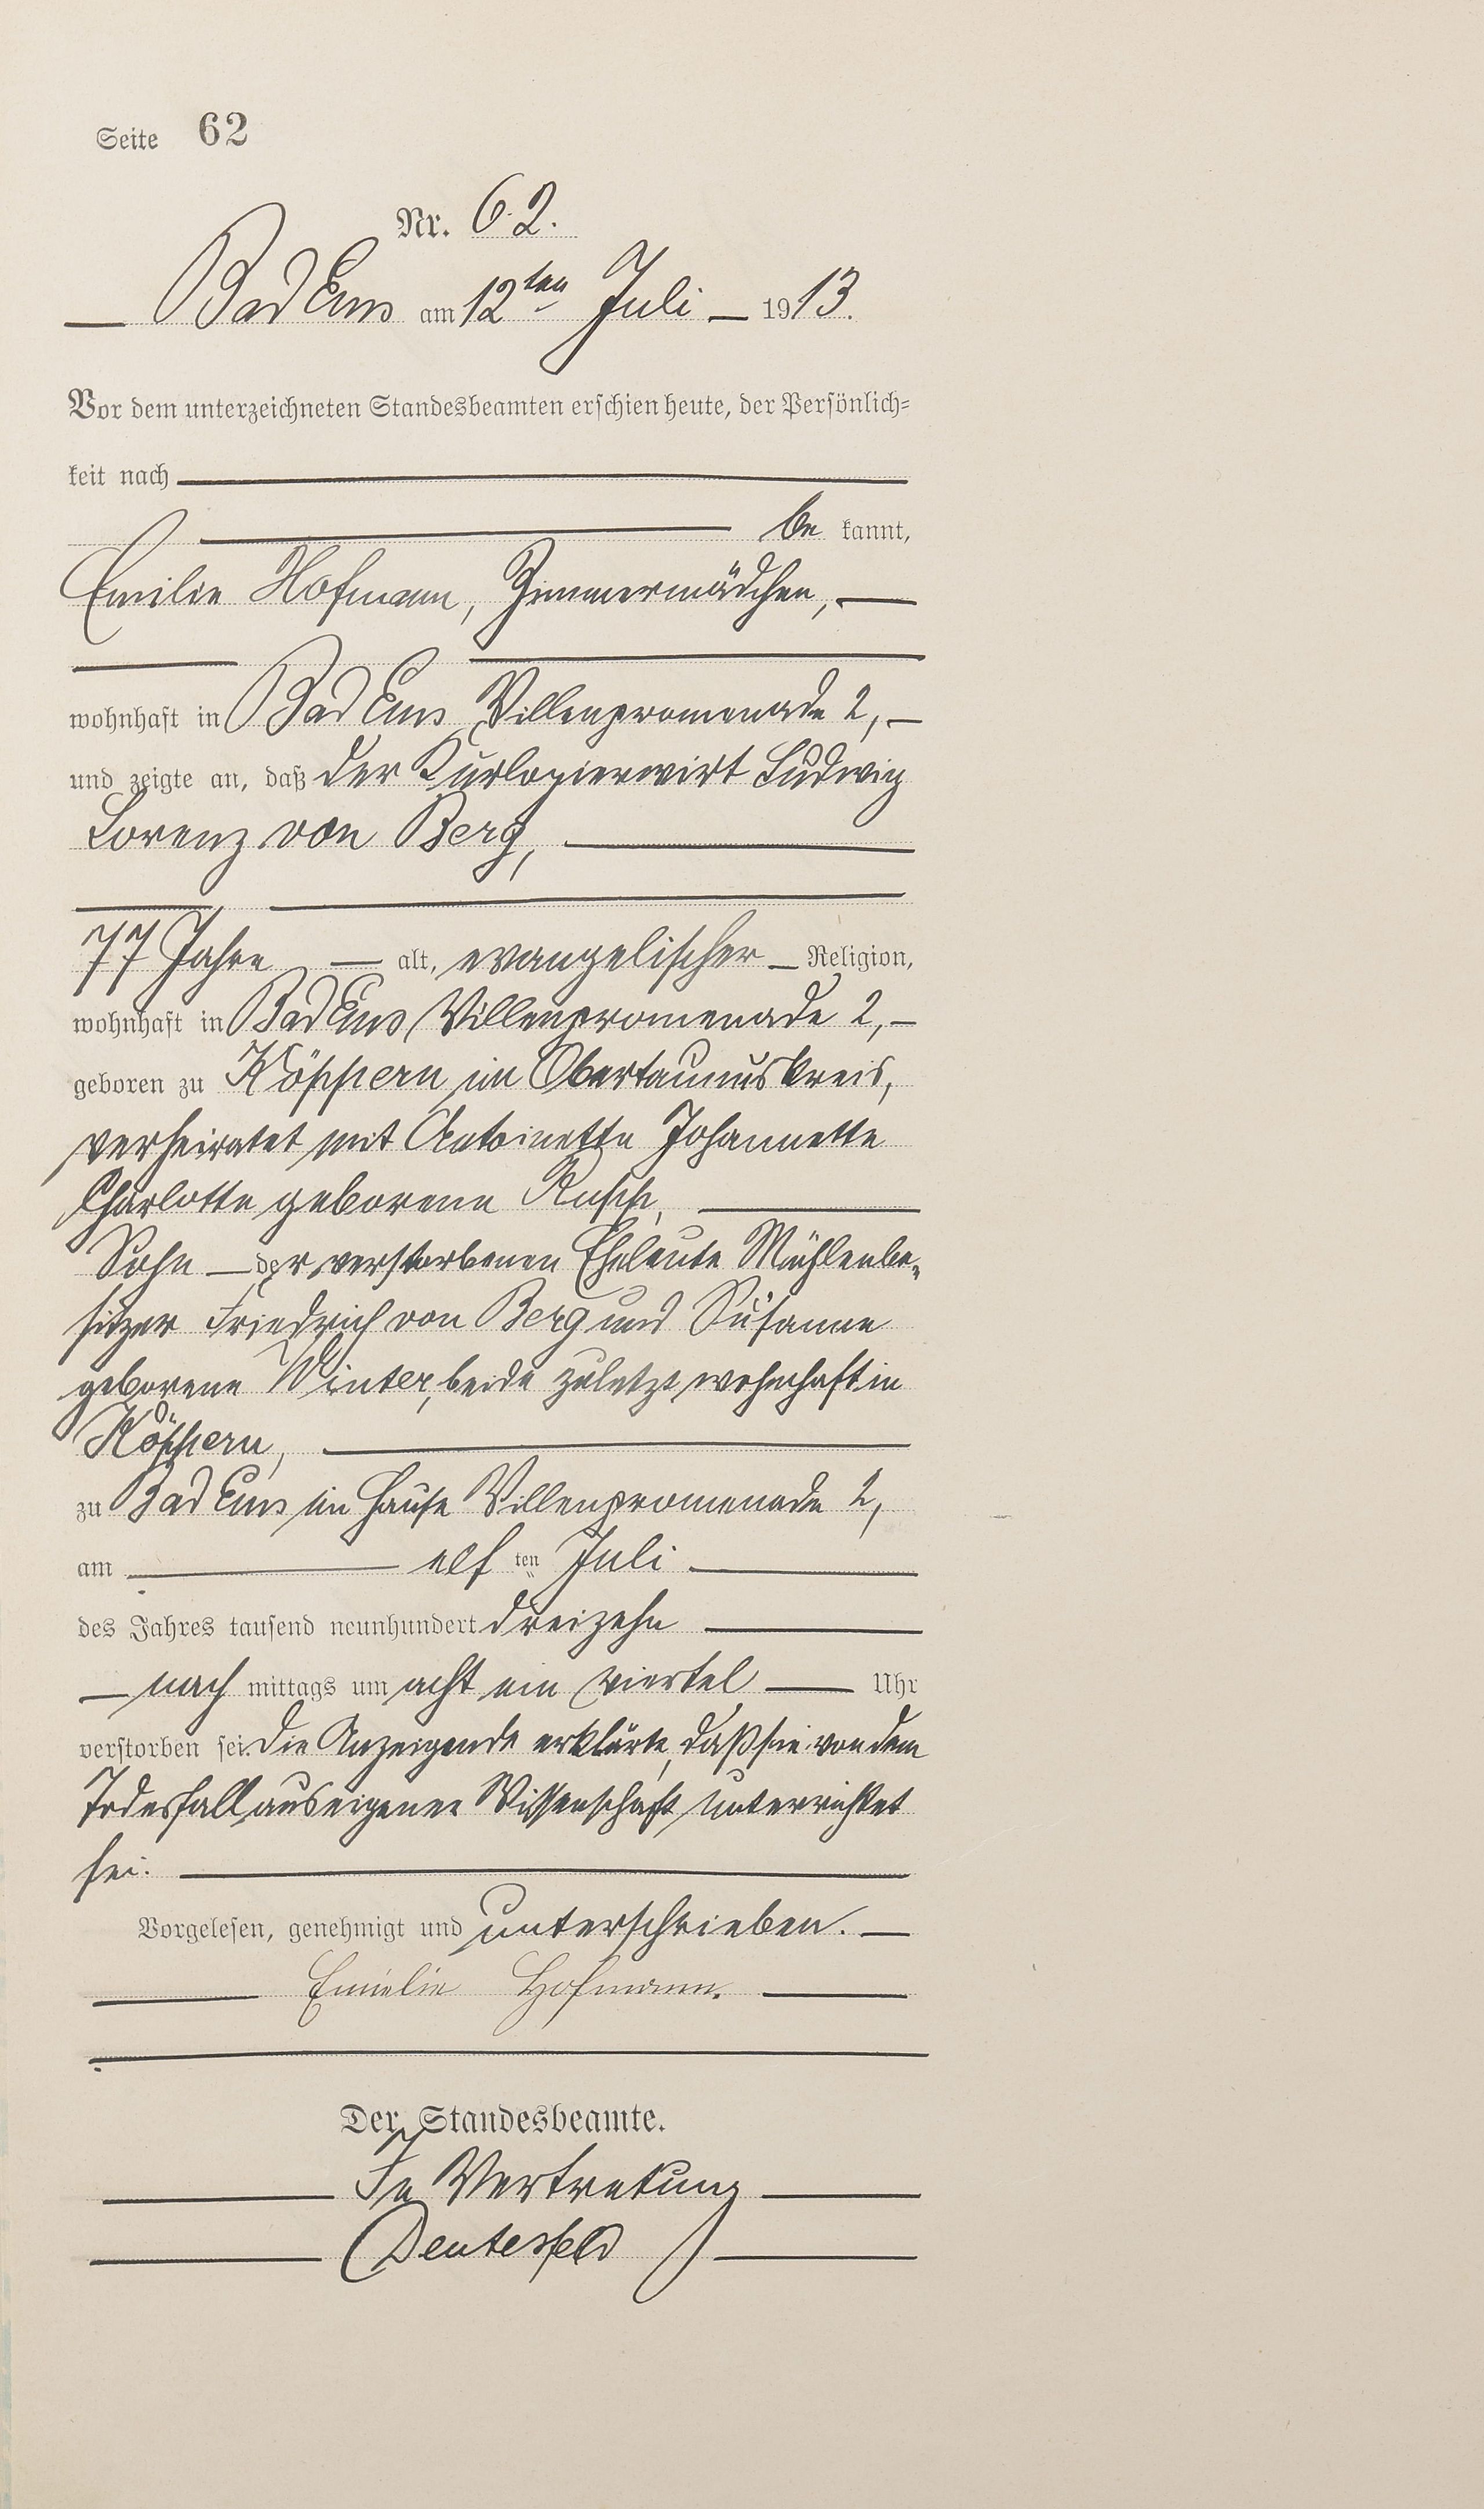 Seite 62
Nr. 62.
Bad Ems am 12ten Juli 1913.
Vor dem unterzeichneten Standesbeamten erschien heute, der Persönlich=
keit nach
be kannt,
Emilie Hofmann, Zimmermädchen,
wohnhaft in Bad Ems, Villenpromenade 2,
und zeigte an, daß der Kurlogierwirt Ludwig
Lorenz von Berg,
77 Jahre alt, evangelischer Religion,
wohnhaft in Bad Ems, Villenpromenade 2,
geboren zu Köppern im Obertaunuskreis,
verheiratet mit Antoinette Johannette
Charlotte geborene Rupp,
Sohn der verstorbenen Eheleute Mühlenbe-
sitzer Friedrich von Berg und Susanne
geborene Winter, beide zuletzt wohnhaft in
Köppern,
zu Bad Ems im Hause Villenpromenade 2,
am elf ten Juli
des Jahres tausend neunhundert dreizehn
nach mittags um acht ein viertel Uhr
verstorben sei. Die Anzeigende erklärte, daß sie von dem
Todesfall aus eigener Wissenschaft unterrichtet
sei.
Vorgelesen, genehmigt und unterschrieben.
Emielie Hofmann.
Der Standesbeamte.
In Vertretung